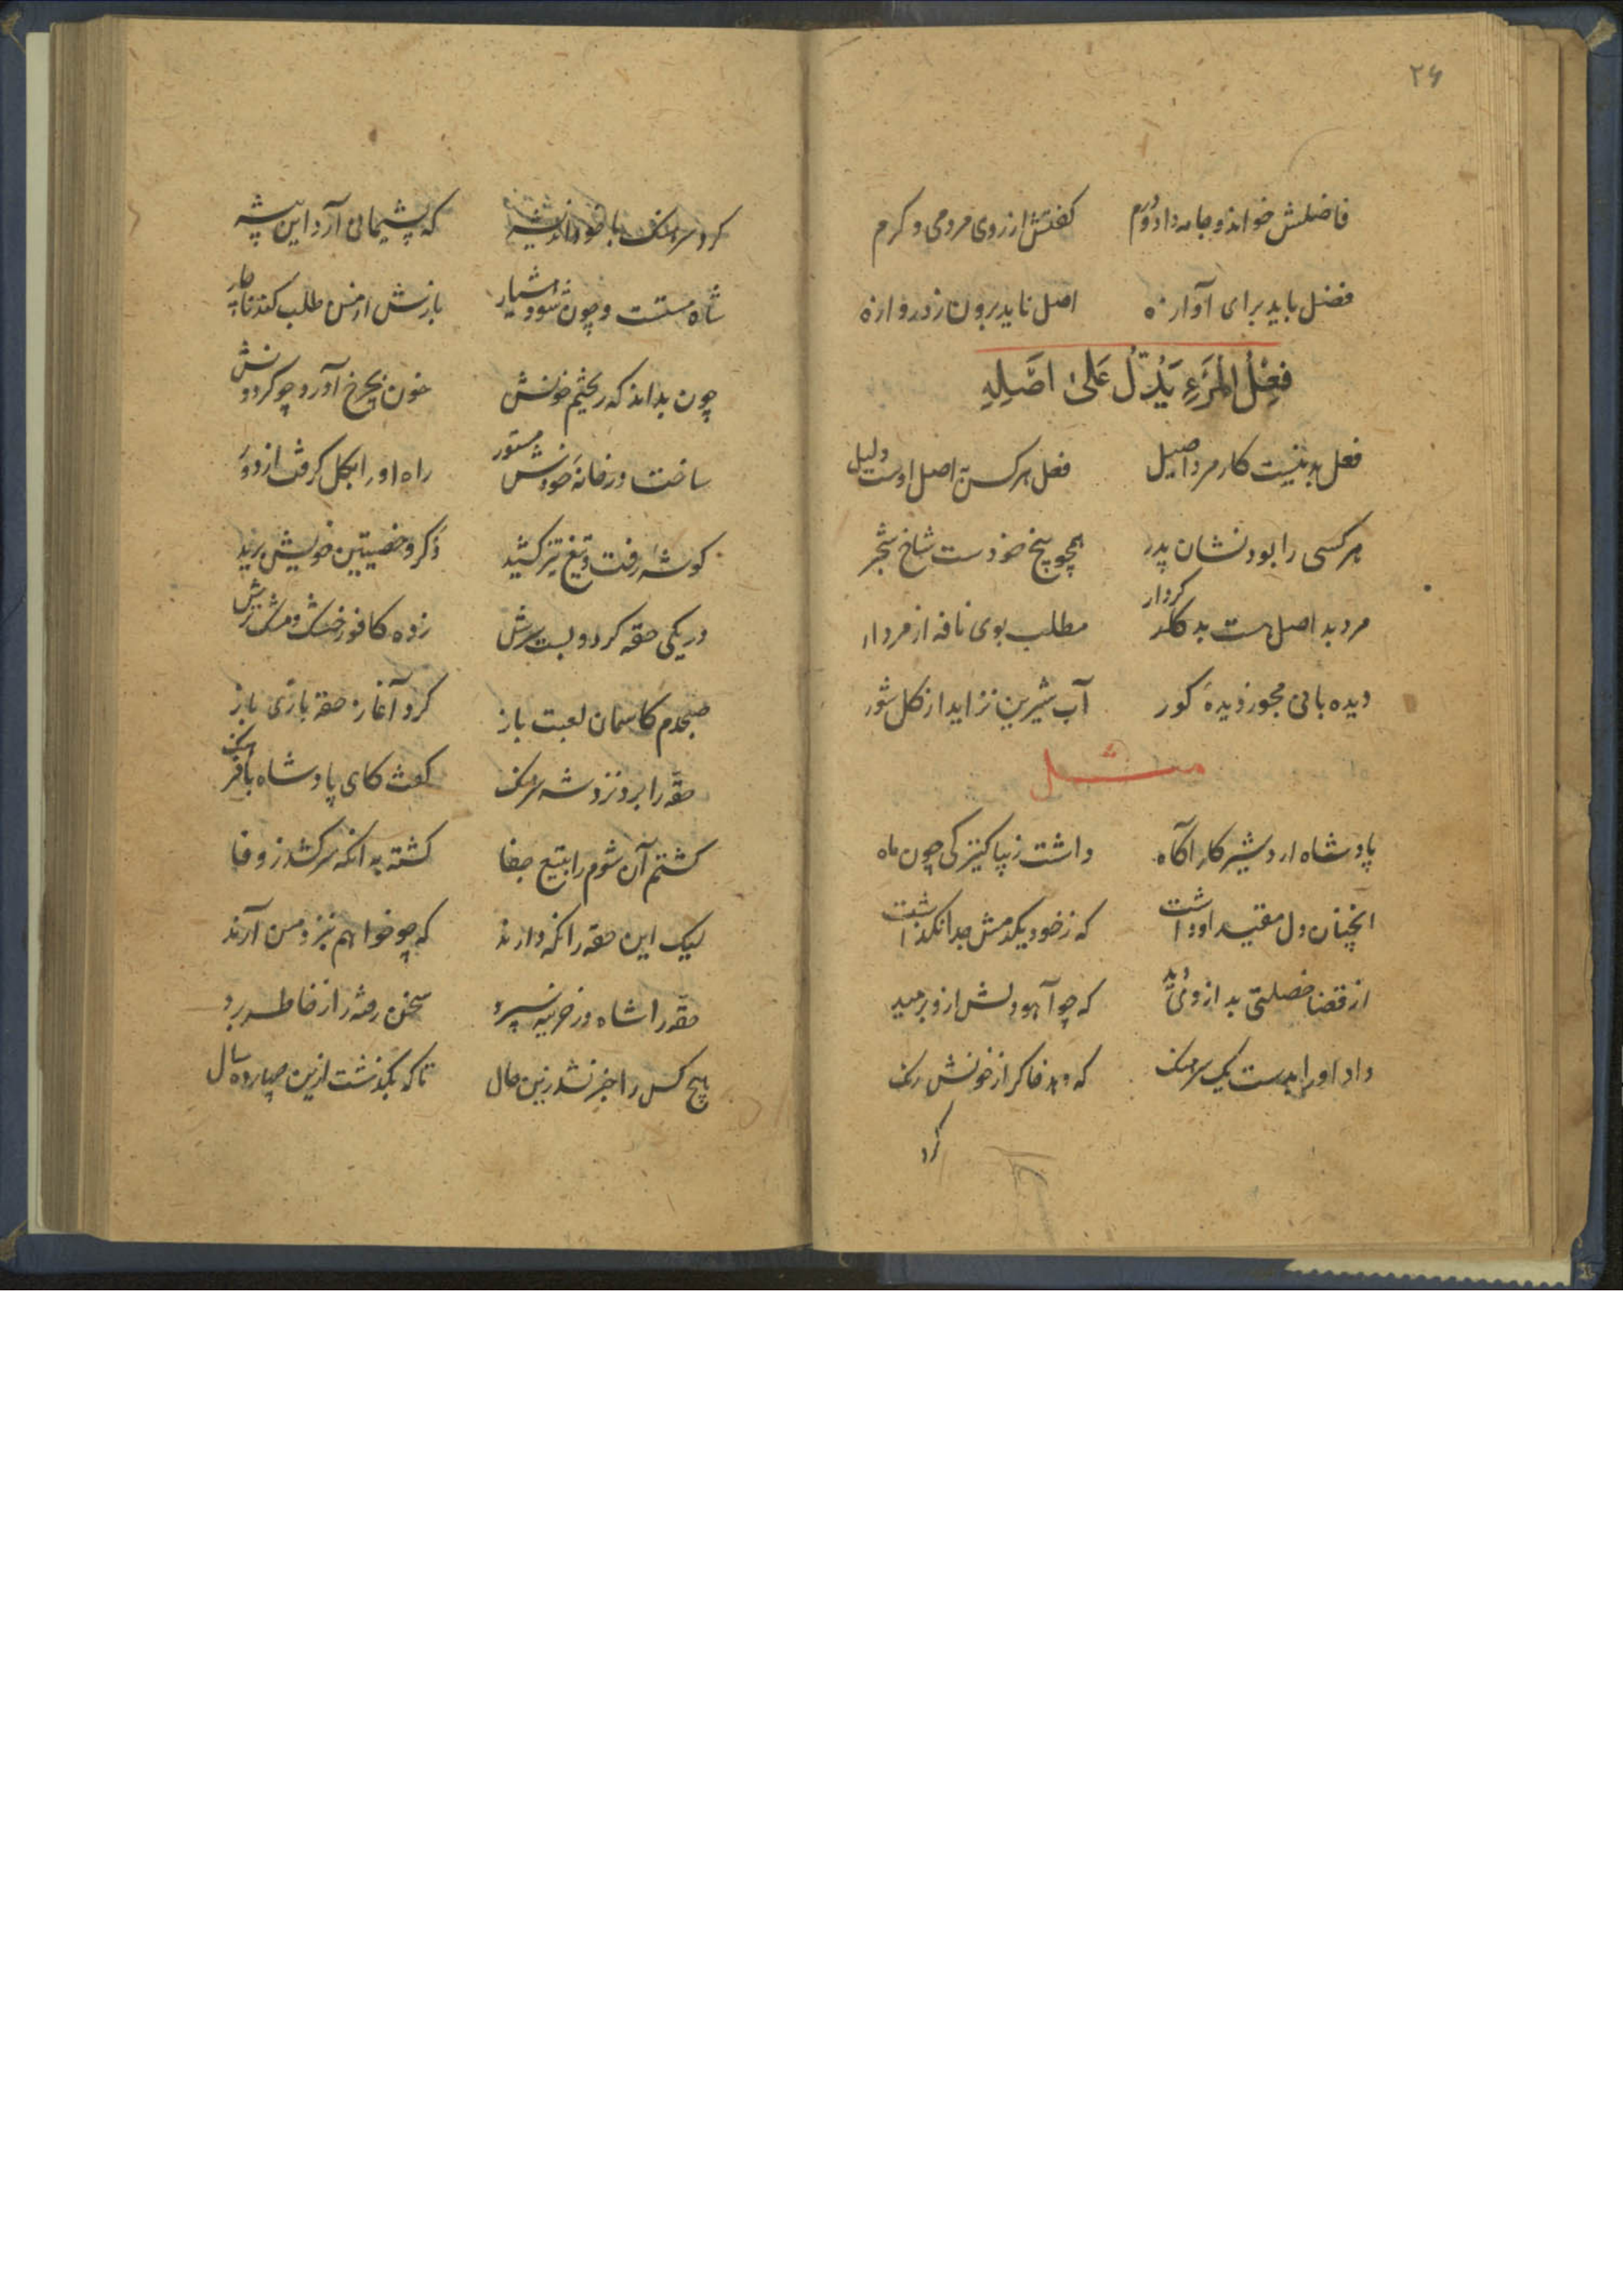 ۲۶
فاضلش خواند و جامه داد و درم کفتش از روی مردمی و کرم
فضل باید برای آوازه اصل ناید برون ز دروازه
فِعْلُ المَرْءِ یَدُلُّ عَلیٰ اَصْلِهِ
فعل بد نیست کار مرد اصیل فعل هر کس بر اصل اوست دلیل
هر کسی را بود نشان پدر همچو بیخ خودست شاخ شجر
مرد بد اصل هست بد کردار مطلب بوی نافه از مردار
دیده بانی مجو ز دیدهٔ کور آب شیرین نزاید از کل شور
مثل
پادشاه اردشیر کار آکاه داشت زیبا کنیزکی چون ماه
انچنان دل مقید او داشت که ز خود یکدمش جدا نکذاشت
از قضا خصلتی بد از وی دید که چو آهو دلش ازو برمید
داد او را بدست یک سرهنک که دهد خاک را ز خونش رنک
کرد
کرد سرهنک با خود اندیشه که پشیمانی آرد این پیشه
شاه مستست و چون شود هشیار بازش از من طلب کند ناچار
چون بداند که ریختم خونش خون بچرخ آورد چو کردونش
ساخت در خانهٔ خودش مستور راه او را بکل کرفت از دور
کوشه رفت و تیغ تیز کشید ذکر و خصیتین خویش برید
در یکی حقه کرد و بست سرش زده کافور خشک و مشک برش
صبحدم کاسمان لعبت باز کرد آغاز حقه بازی باز
حقه را برد نزد شه سرهنک کفت کای پادشاه بافرهنک
کشتم آن شوم را بتیغ جفا کشته به انکه سر کشد ز وفا
لیک این حقه را نکه دارند که چو خواهم بنزد من آرند
حقه را شاه در خزینه سپرد سخن رفته را ز خاطر برد
هیچ کس را خبر نشد زین حال تا که بکذشت ازین میان ده سال